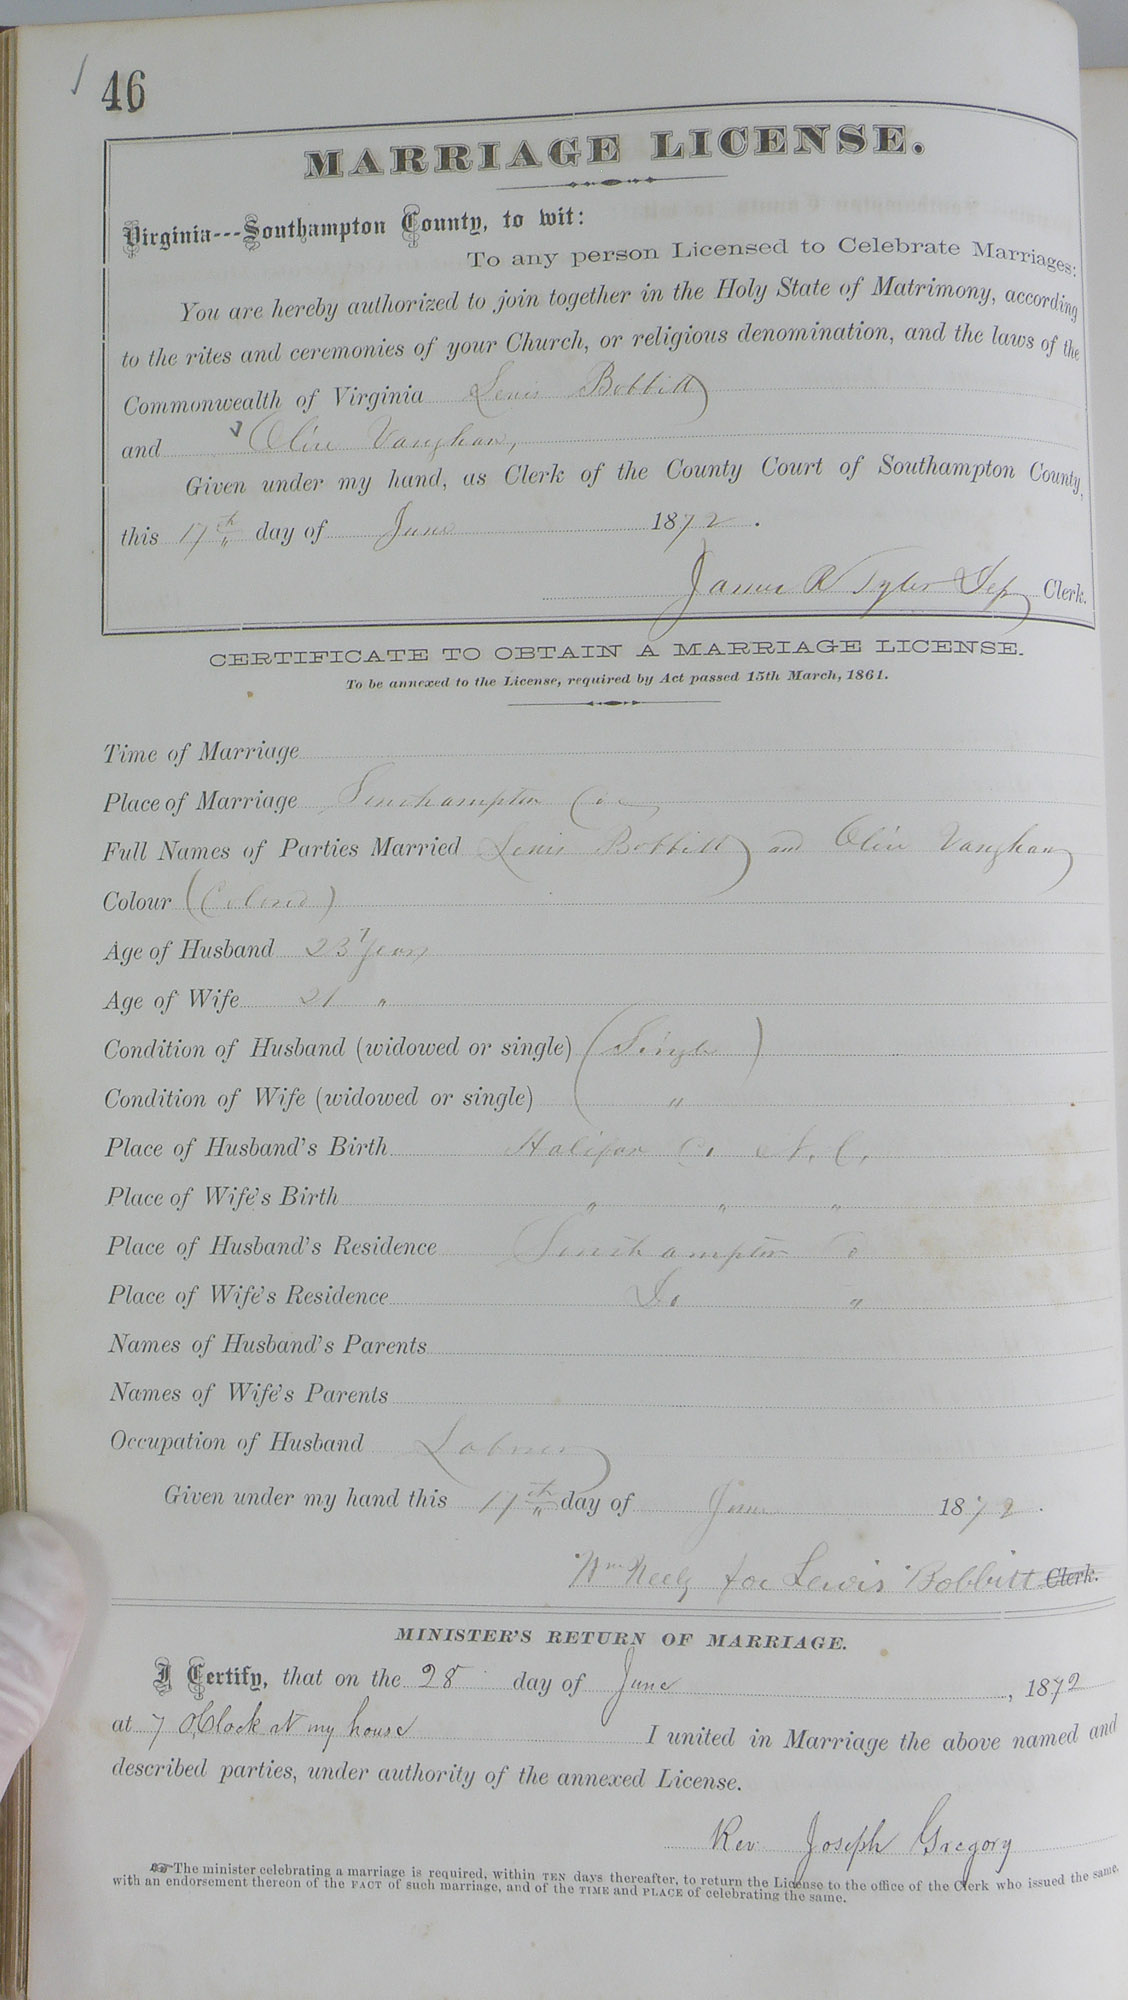 46
MARRIAGE LICENSE.
Virginia---Southampton County, to wit:
To any person Licensed to Celebrate Marriages:
You are hereby authorized to join together in the Holy State of Matrimony, according
to the rites and ceremonies of your Church, or religious denomination, and the laws of the
Commonwealth of Virginia Lewis Bobbitt
and Olive Vaughan,
Given under my hand, as Clerk of the County Court of Southampton County,
this 17th day of June 1872.
James R Tyler Dep Clerk.
CERTIFICATE TO OBTAIN A MARRIAGE LICENSE.
To be annexed to the License, required by Act passed 15th March, 1861.
Time of Marriage
Place of Marriage Southampton Co
Full Names of Parties Married Lewis Bobbitt and Olive Vaughan
Colour (Colored)
Age of Husband 23 Years
Age of Wife 21 "
Condition of Husband (widowed or single) (Single)
Condition of Wife (widowed or single) "
Place of Husband's Birth Halifax Co N.C.
Place of Wife's Birth " " "
Place of Husband's Residence Southampton Co
Place of Wife's Residence Do "
Names of Husband's Parents
Names of Wife's Parents
Occupation of Husband Laborer
Given under my hand this 17th day of June 1872.
Wm Neely for Lewis Bobbitt Clerk.
MINISTER'S RETURN OF MARRIAGE.
I Certify, that on the 28 day of June, 1872
at 7 OClock at my house I united in Marriage the above named and
described parties, under authority of the annexed License.
Rev Joseph Gregory
☞The minister celebrating a marriage is required, within TEN days thereafter, to return the License to the office of the Clerk who issued the same,
with an endorsement thereon of the FACT of such marriage, and of the TIME and PLACE of celebrating the same.